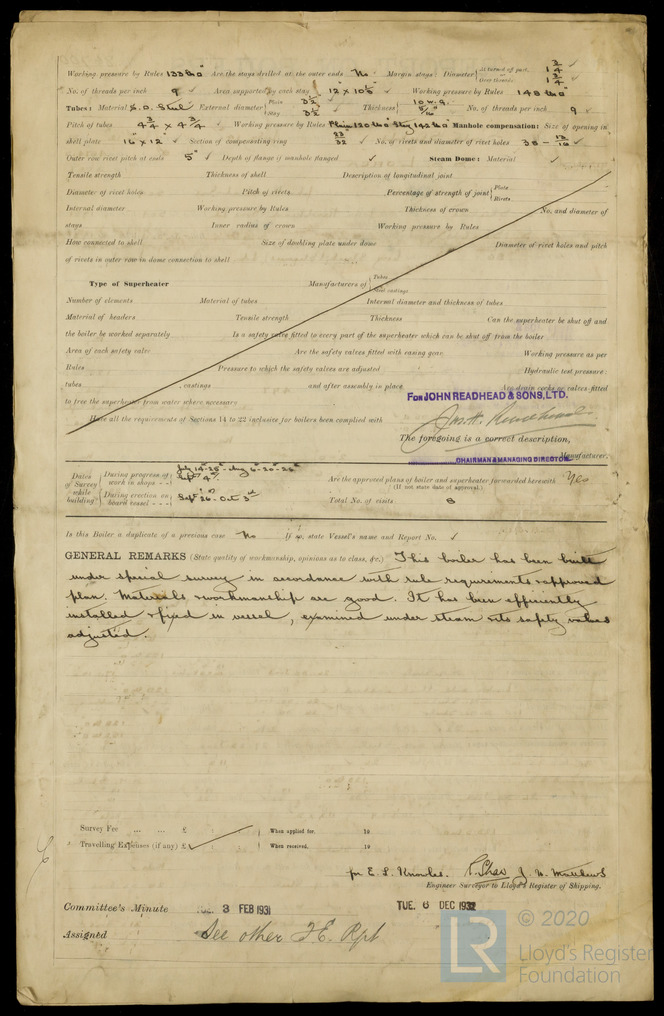 Working pressure by Rules 133 lbs Are the stays drilled at the outer ends No Margin stays Diameter At turned off part, or Over threads 1 3/4 1 3/4
No. of threads per inch 9 Area supported by each stay 12" × 10 1/2" Working pressure by Rules 148 lbs
Tubes: Material S.O. Steel External diameter Plain 3 1/2 Stay 3 1/2 Thickness 10 w.g. 5/16 No. of threads per inch 9
Pitch of tubes 4 3/4 × 4 3/4 Working pressure by Rules Plain 120 lbs Stay 142 lbs Manhole compensation: Size of opening in
shell plate 16" × 12" Section of compensating ring 23/32 No. of rivets and diameter of rivet holes 36 - 13/16
Outer row rivet pitch at ends 5" Depth of flange if manhole flanged Steam Dome: Material
Tensile strength Thickness of shell Description of longitudinal joint
Diameter of rivet holes Pitch of rivets Percentage of strength of joint Plate Rivets
Internal diameter Working pressure by Rules Thickness of crown No. and diameter of
stays Inner radius of crown Working pressure by Rules
How connected to shell Size of doubling plate under dome Diameter of rivet holes and pitch
of rivets in outer row in dome connection to shell
Type of Superheater Manufacturers of Tubes Steel castings
Number of elements Material of tubes Internal diameter and thickness of tubes
Material of headers Tensile strength Thickness Can the superheater be shut off and
the boiler be worked separately Is a safety valve fitted to every part of the superheater which can be shut off from the boiler
Area of each safety valve Are the safety valves fitted with easing gear Working pressure as per
Rules Pressure to which the safety valves are adjusted Hydraulic test pressure:
tubes , castings and after assembly in place Are drain cocks or valves fitted
to free the superheater from water where necessary
FOR JOHN READHEAD & SONS, LTD.
Have all the requirements of Sections 14 to 22 inclusive for boilers been complied with
Jas. H. Readhead
The foregoing is a correct description,
CHAIRMAN & MANAGING DIRECTOR Manufacturer.
Dates of Survey while building During progress of work in shops - - July 14-25- Aug 6-20-28 Sept 4
Are the approved plans of boiler and superheater forwarded herewith Yes
(If not state date of approval.)
During erection on board vessel - - - Sept 26 - Oct 3rd Total No. of visits 8
Is this Boiler a duplicate of a previous case No If so, state Vessel's name and Report No.
GENERAL REMARKS (State quality of workmanship, opinions as to class, &c.) This boiler has been built
under special survey in accordance with rule requirements & approved
plan. Materials & workmanship are good. It has been efficiently
installed & fixed in vessel, examined under steam & its safety valves
adjusted.
Survey Fee ... ... £ : : When applied for, 19
Travelling Expenses (if any) £ : : When received, 19
for E. S. Knowles. J. W. Matthews
Engineer Surveyor to Lloyd's Register of Shipping.
Committee's Minute TUE. 3 FEB 1931 TUE. 6 DEC 1932
Assigned See other F.E. Rpt
© 2020
LR
Lloyd's Register
Foundation